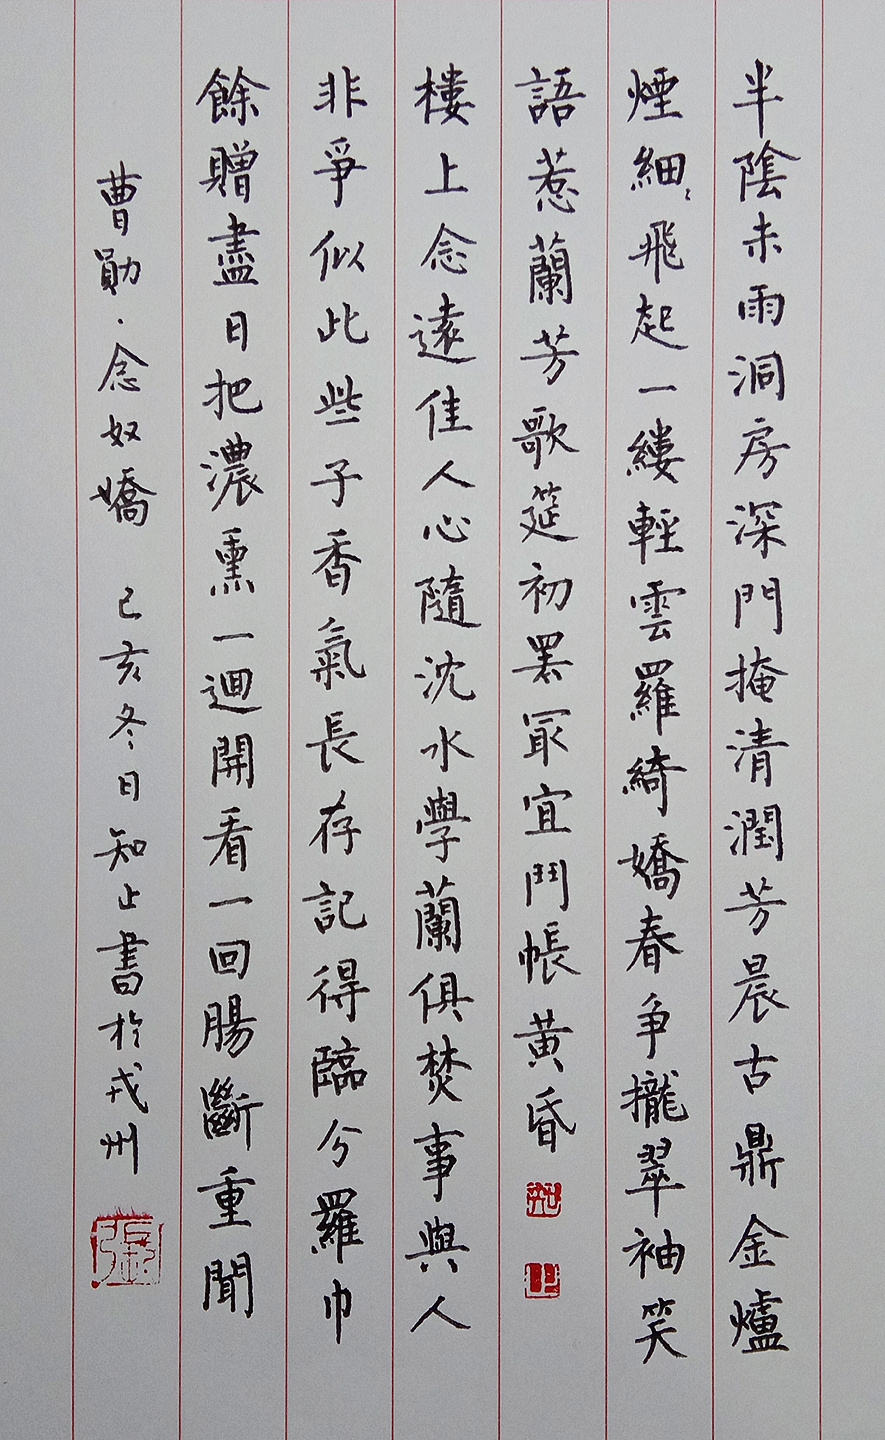 半陰未雨洞房深門掩清潤芳晨古鼎金爐
煙細〻飛起一縷輕雲羅綺嬌春争攏翠袖笑
語惹蘭芳歌筵初罷冣宜鬥帳黄昏
樓上念遠佳人心隨沈水學蘭俱焚事與人
非爭似此些子香氣長存記得臨分羅巾
餘贈盡日把濃熏一迴開看一回腸斷重聞
曹勛·念奴嬌 己亥冬日知止書於戎州
知
止
張